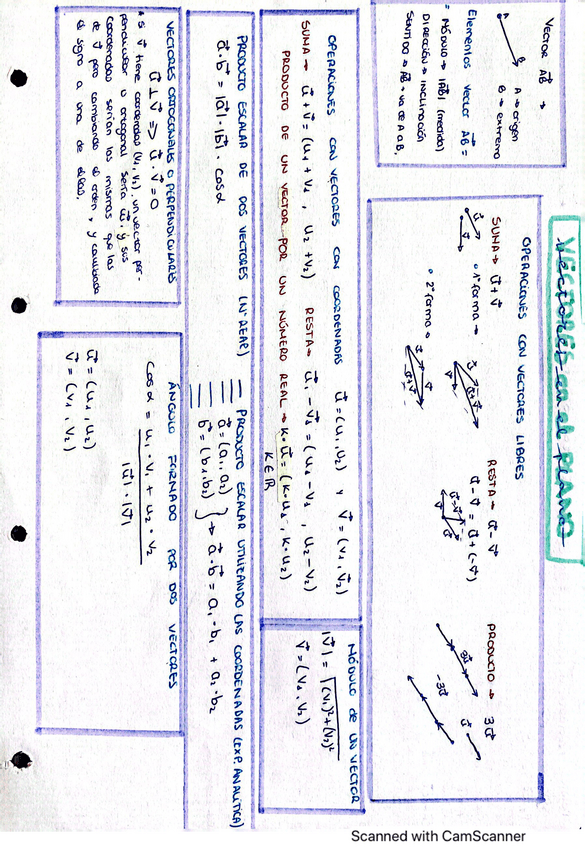 VECTORES en el PLANO
VECTOR AB→ →
A
B
A → origen
B → extremo
Elementos vector AB→ =
= MÓDULO → |AB→| (medida)
DIRECCIÓN → INCLINACIÓN
SENTIDO → AB→ → va de A a B.
OPERACIONES CON VECTORES LIBRES
SUMA → u→ + v→
• 1ª forma →
• 2ª forma →
RESTA → u→ - v→
u→ - v→ = u→ + (-v→)
PRODUCTO → 3u→
3u→
u→
-3u→
OPERACIONES CON VECTORES CON COORDENADAS u→ = (u₁, u₂) y v→ = (v₁, v₂)
SUMA → u→ + v→ = (u₁ + v₁, u₂ + v₂) RESTA → u→ - v→ = (u₁ - v₁, u₂ - v₂)
PRODUCTO DE UN VECTOR POR UN NÚMERO REAL → K · u→ = (K · u₁, K · u₂)
K ∈ ℝ
MÓDULO DE UN VECTOR
|v→| = √(v₁)² + (v₂)²
v→ = (v₁, v₂)
PRODUCTO ESCALAR DE DOS VECTORES (LINEAR)
a→ · b→ = |a→| · |b→| · cos α
PRODUCTO ESCALAR UTILIZANDO LAS COORDENADAS (EXP. ANALÍTICA)
a→ = (a₁, a₂)
b→ = (b₁, b₂)
} → a→ · b→ = a₁ · b₁ + a₂ · b₂
VECTORES ORTOGONALES O PERPENDICULARES
u→ ⊥ v→ => u→ · v→ = 0
→ Si v→ tiene coordenadas (v₁, v₂), un vector per-
pendicular u ortogonal sería u→, y sus
coordenadas serían las mismas que las
de v→ pero cambiando el orden, y cambiando
el signo a una de ellas.
ÁNGULO FORMADO POR DOS VECTORES
cos α = u₁ · v₁ + u₂ · v₂
|u→| · |v→|
u→ = (u₁, u₂)
v→ = (v₁, v₂)
Scanned with CamScanner